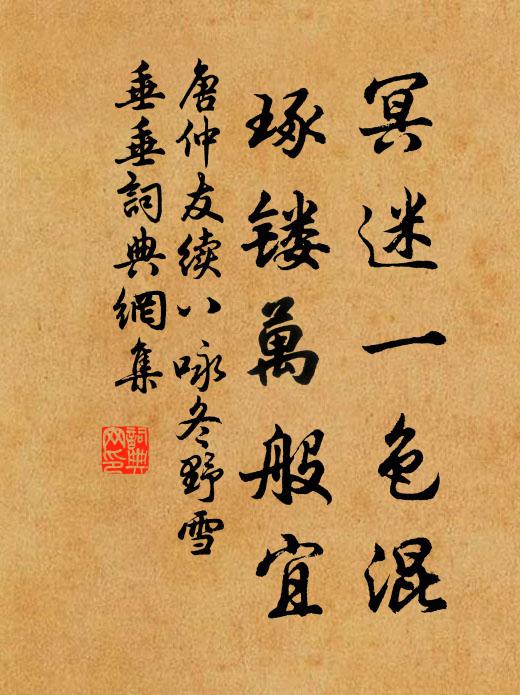 冥迷一色混
琢镂萬般宜
唐仲友續八咏冬野雪
垂垂詞典網集
詞典
网印